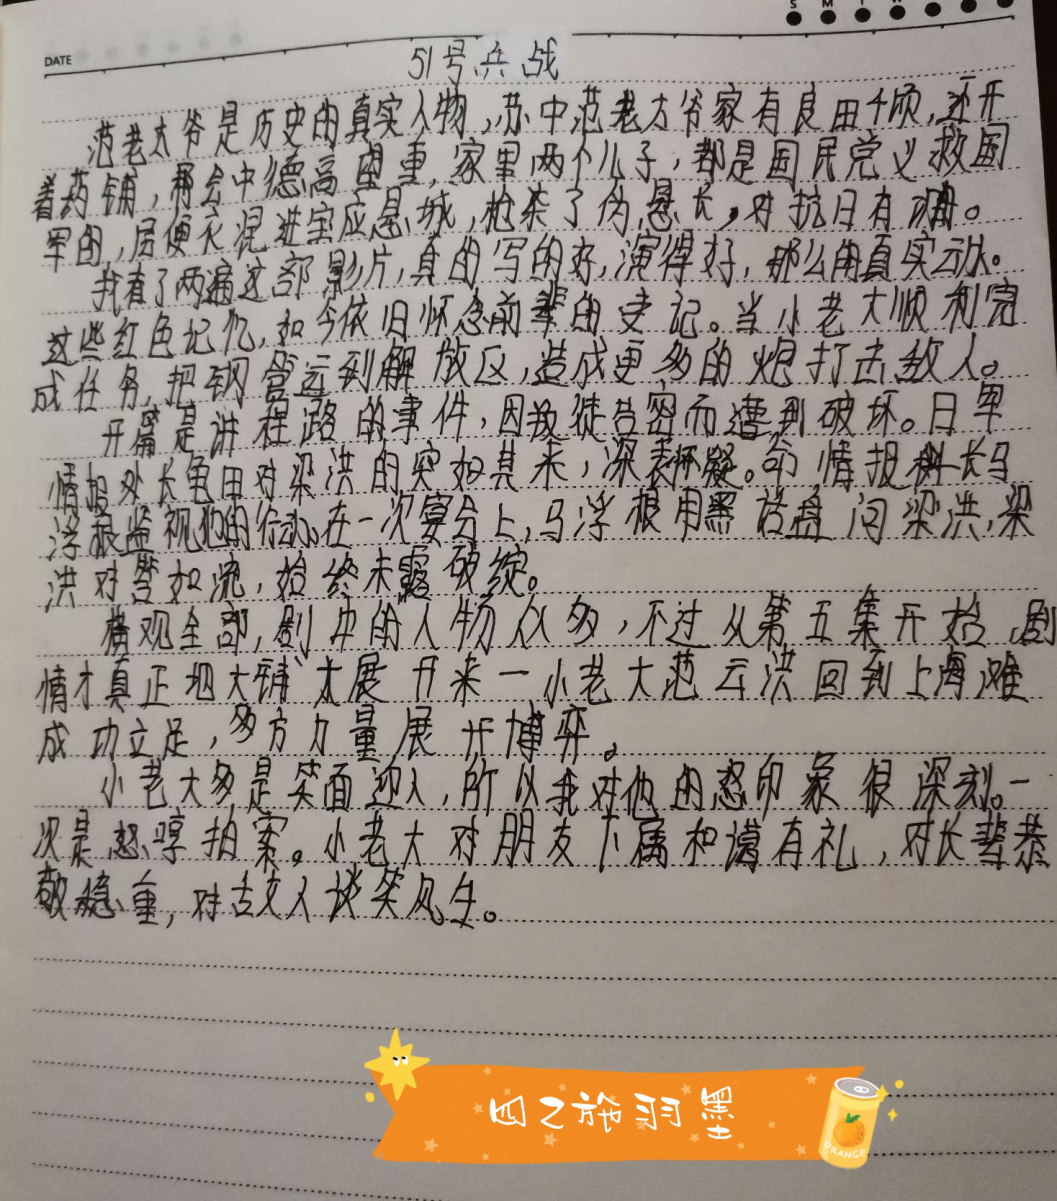 S M T W
DATE
51号兵战
范老太爷是历史的真实人物,苏中范老太爷家有良田千顷,还开
着药铺,帮会中德高望重,家里两个儿子,都是国民党义救国
军的,居便衣混进宝应县城,枪杀了伪县长,对抗日有功。
我看了两遍这部影片,真的写的好,演得好,那么的真实动人。
这些红色记忆,如今依旧怀念前辈的史记。当小老大顺利完
成任务,把钢管运到解放区,造成更多的炮打击敌人。
开篇是讲程路的事件,因叛徒告密而遭到破坏。日军
情报处长龟田对梁洪的突如其来,深表怀疑。命情报科长马
浮根监视他的行动。在一次宴会上,马浮根用黑话盘问梁洪,梁
洪对答如流,始终未露破绽。
横观全部,剧中的人物众多,不过从第五集开始,剧
情才真正地大铺大展开来一小老大范云洪回到上海滩
成功立足,多方力量展开博弈。
小老大多是笑面迎人,所以我对他的忍印象很深刻。一
次是怒哼拍案。小老大对朋友下属和谒有礼,对长辈恭
敬稳重,对古文人谈笑风生。
四乙施羽墨
ORANGE